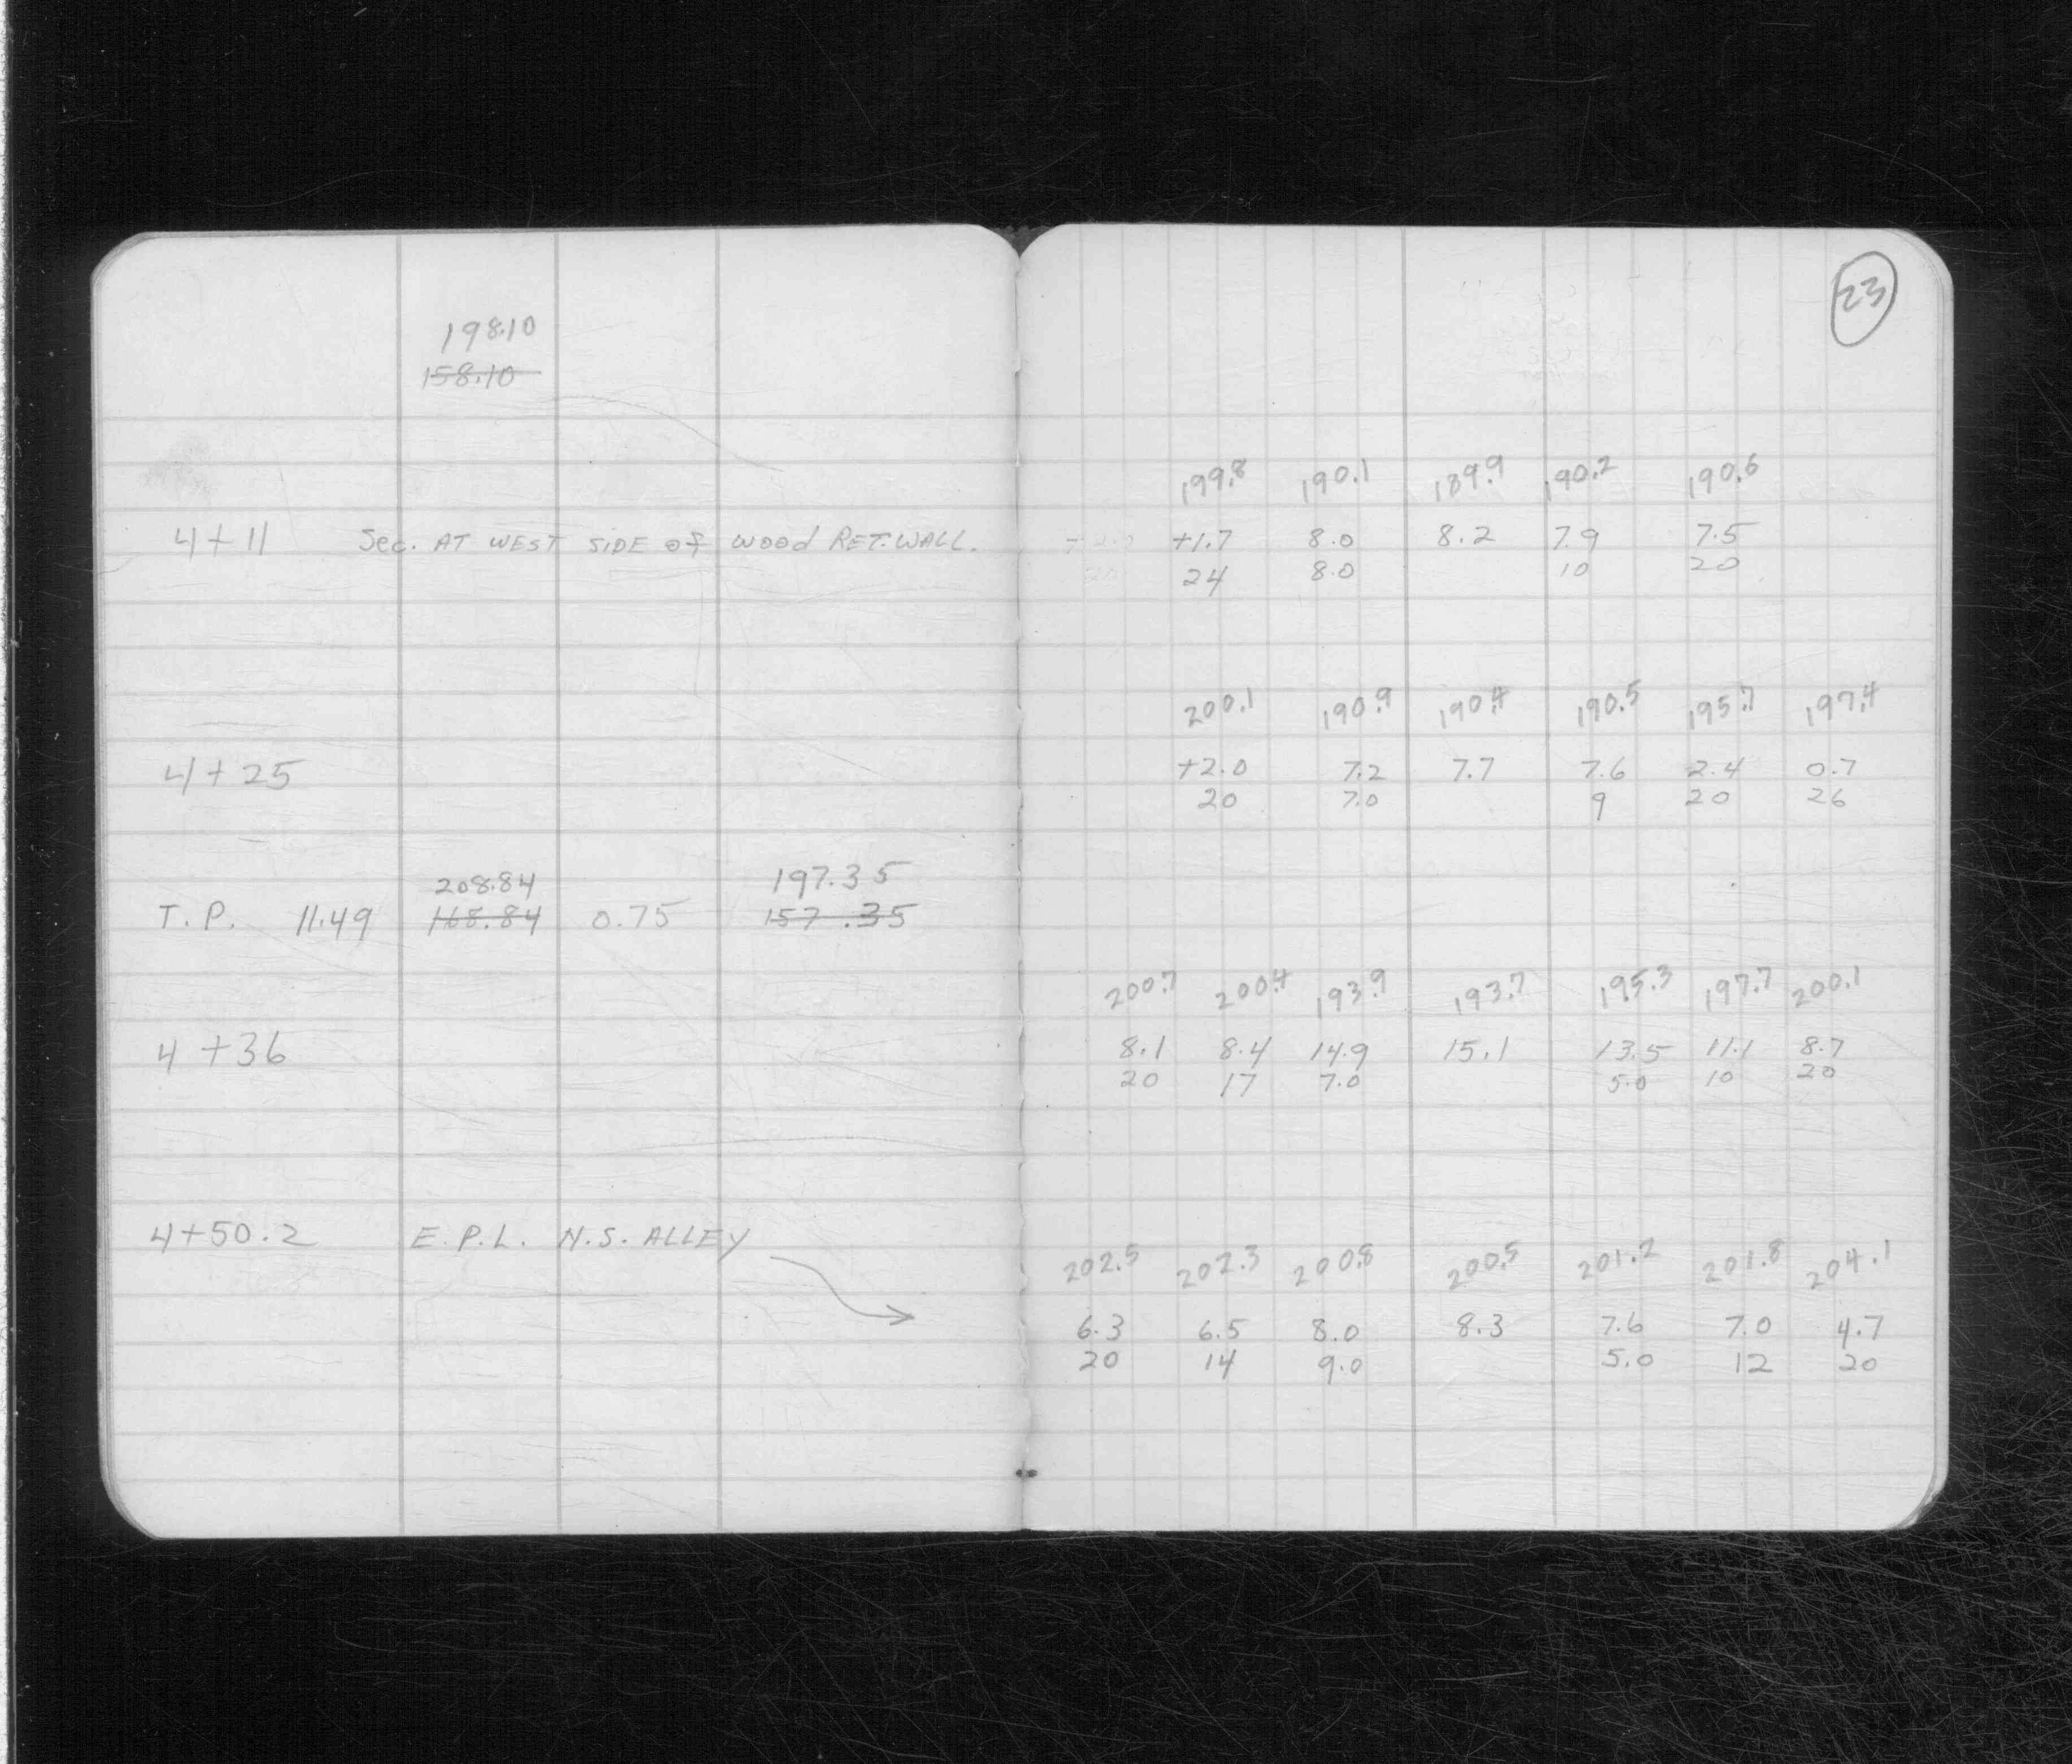 23
198.10
158.10
199.8 190.1 189.9 190.2 190.6
4+11 Sec. AT WEST SIDE OF WOOD RET. WALL. +1.7 8.0 8.2 7.9 7.5
24 8.0 10 20
200.1 190.9 190.4 190.5 195.7 197.4
4+25 +2.0 7.2 7.7 7.6 2.4 0.7
20 7.0 9 20 26
208.84 197.35
T.P. 11.49 168.84 0.75 157.35
200.7 200.4 193.9 193.7 195.3 197.7 200.1
4+36 8.1 8.4 14.9 15.1 13.5 11.1 8.7
20 17 7.0 5.0 10 20
4+50.2 E.P.L. N.S. ALLEY
202.5 202.3 200.8 200.5 201.2 201.8 204.1
6.3 6.5 8.0 8.3 7.6 7.0 4.7
20 14 9.0 5.0 12 20